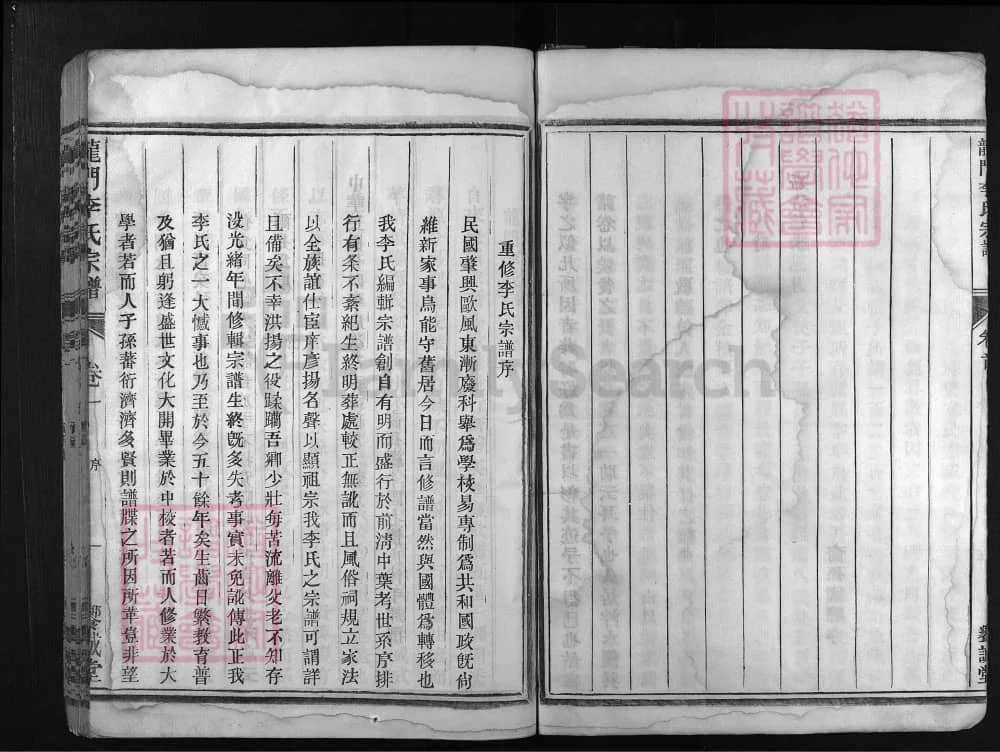 龍門李氏宗譜
卷首
重修李氏宗譜序
民國肇興歐風東漸廢科舉爲學校易專制爲共和國政旣尙
維新家事烏能守舊居今日而言修譜當然與國體爲轉移也
我李氏編輯宗譜創自有明而盛行於前淸中葉考世系序排
行有条不紊紀生終明葬處較正無訛而且風俗祠規立家法
以全族誼仕宦庠彦揚名聲以顯祖宗我李氏之宗譜可謂詳
且備矣不幸洪揚之役蹂躪吾鄉少壯每苦流離父老不知存
沒光緖年間修輯宗譜生終旣多失考事實未免訛傳此正我
李氏之一大憾事也乃至於今五十餘年矣生齒日繁敎育普
及猶且躬逢盛世文化大開畢業於中校者若而人修業於大
學者若而人子孫蕃衍濟濟多賢則譜牒之所因所革豈非望
龍門李氏宗譜
卷一
序
一
FamilySearch